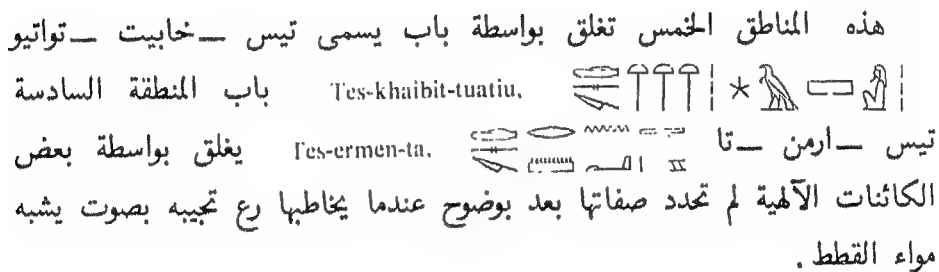 هذه المناطق الخمس تغلق بواسطة باب يسمى تيس ــ خابيت ــ تواتيو
Tes-khaibit-tuatiu. باب المنطقة السادسة
تيس ــ ارمن ــ تا Tes-ermen-ta. يغلق بواسطة بعض
الكائنات الآلهية لم تحدد صفاتها بعد بوضوح عندما يخاطبها رع تجيبه بصوت يشبه
مواء القطط .